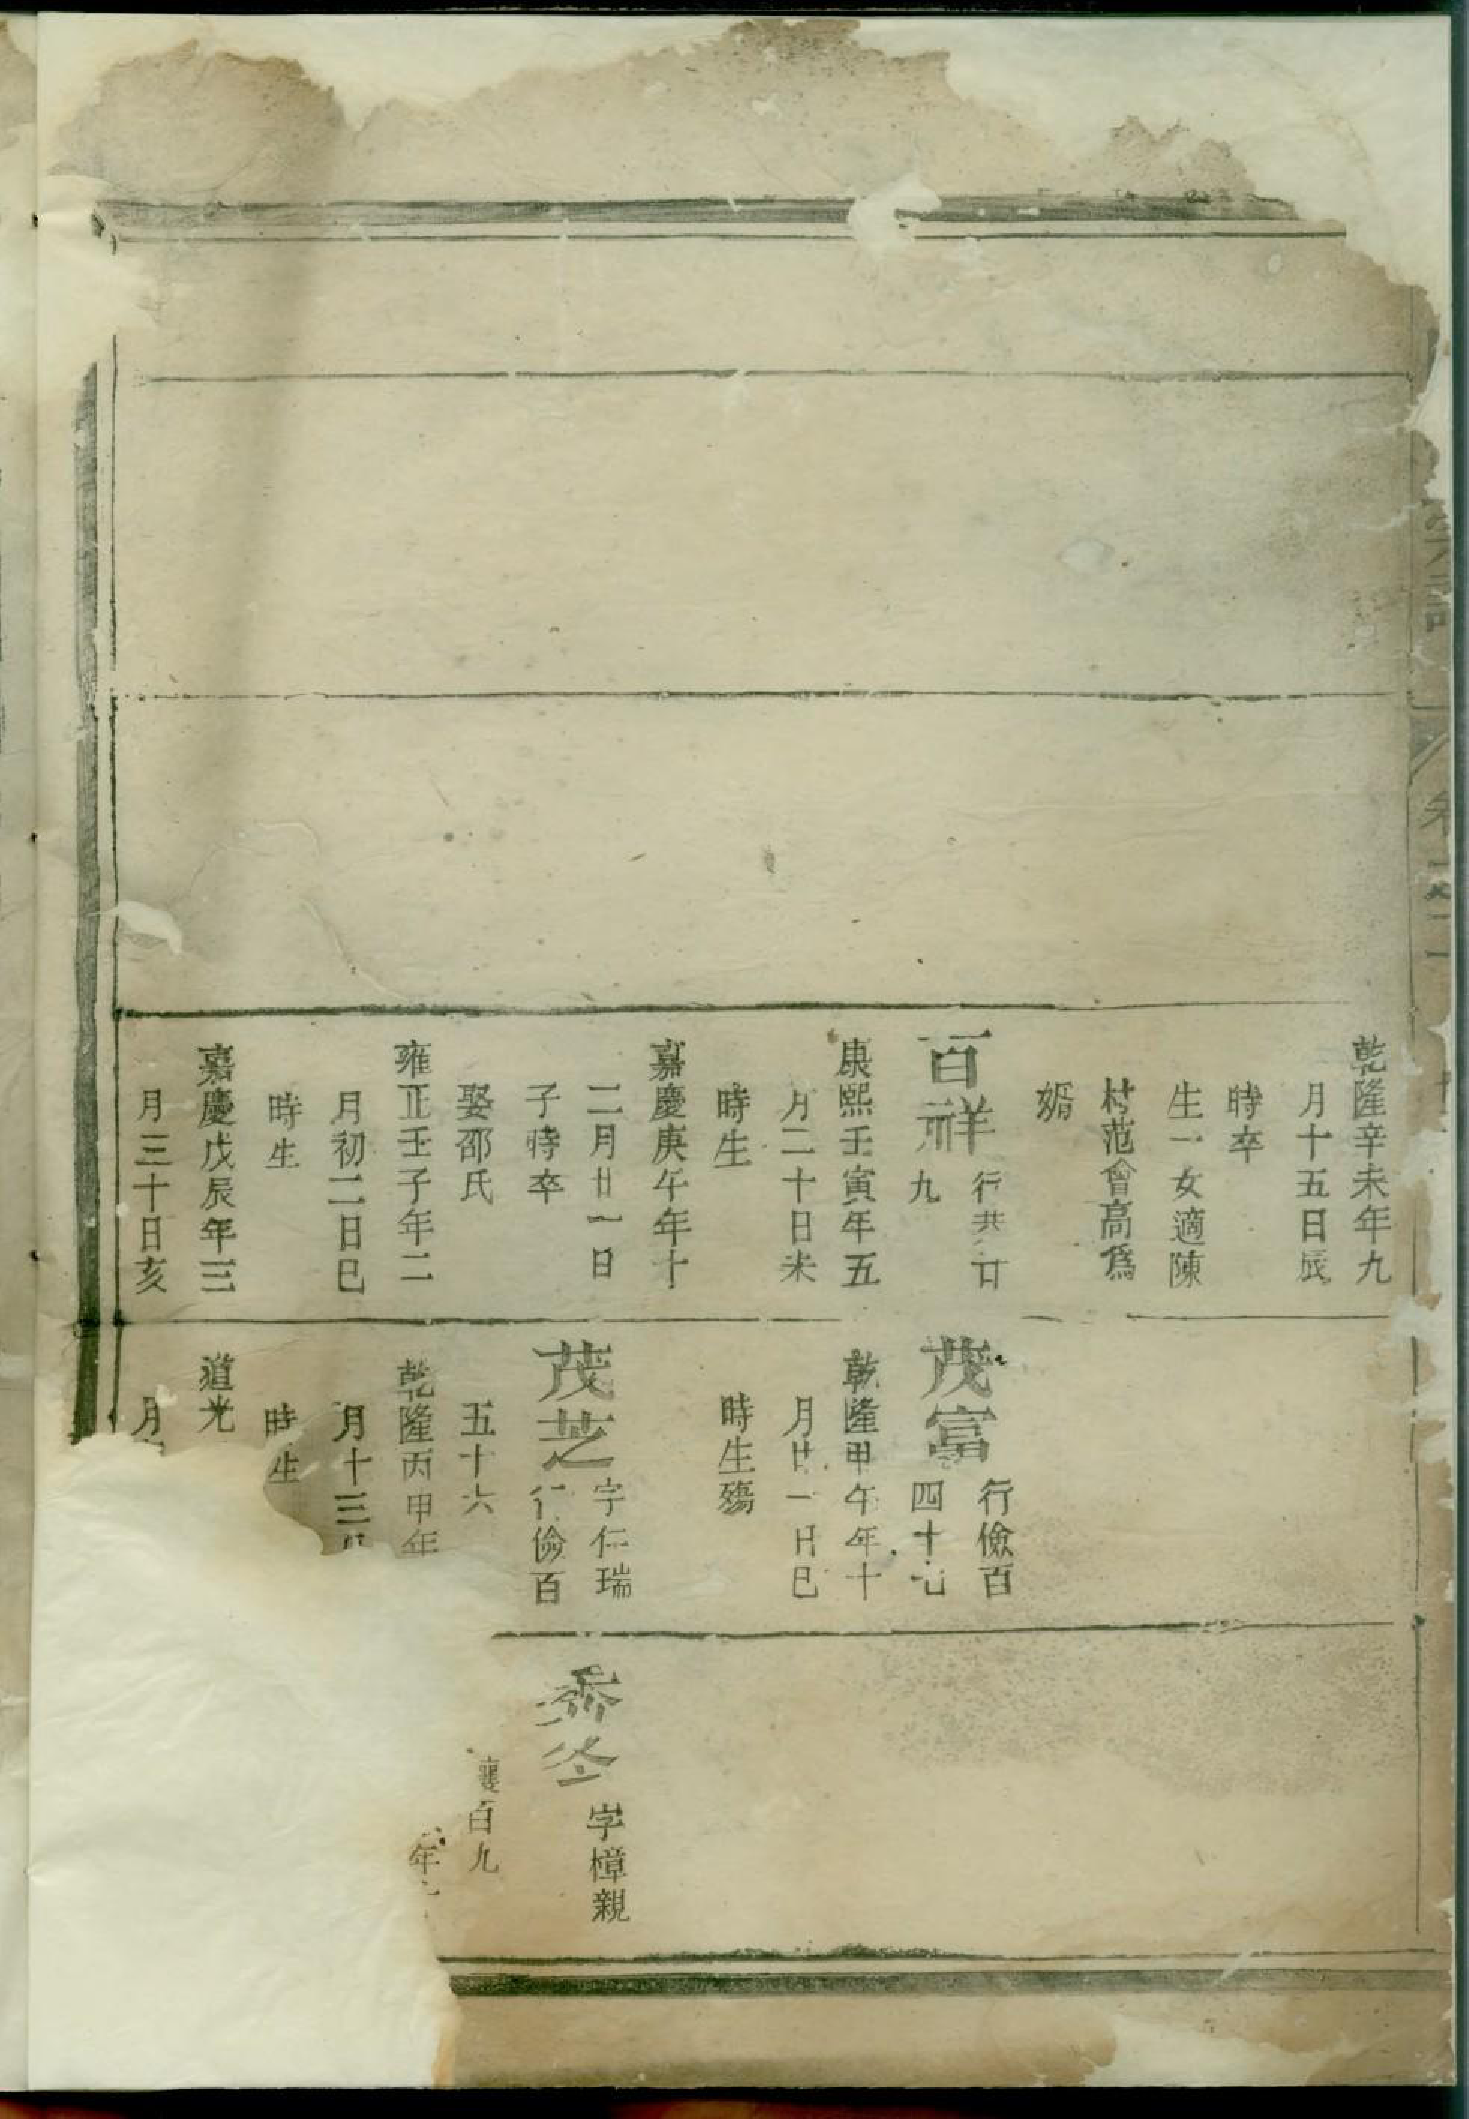 乾隆辛未年九
月十五日辰
時卒
生一女適陳
村范會高爲
婿
百祥
行共廿
九
康熙壬寅年五
月二十日未
時生
嘉慶庚午年十
二月廿一日
子時卒
娶邵氏
雍正壬子年二
月初二日巳
時生
嘉慶戊辰年三
月三十日亥
茂富
行儉百
四十七
乾隆甲午年十
月廿一日巳
時生殤
茂芝
字仁瑞
行儉百
五十六
乾隆丙申年
月十三
時生
道光
月
字樟親
百九
年
卷之二